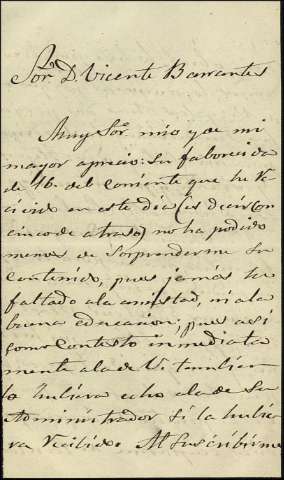 Sor. D. Vicente Barrantes
Muy Sor. mio y de mi
mayor aprecio: su faborecida
de 16. del coniente que he re-
civido en este dia (es decir con
cinco de atraso) no ha podido
menos de Sorprenderme su
contenido, pues jamás he
faltado a la amistad, ni a la
buena educacion; pues asi
como contesto inmediata
mente a la de V. tambie-
lo hubiera echo a la de su
Administrador si la hubie-
ra recibido. Al suscribirme